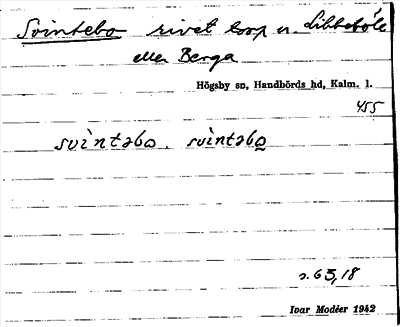 Svintebo rivet torp u. Libbetóle
eller Berga
Högsby sn, Handbörds hd, Kalm. l.
455
svìntəbo . svìntəbo̲
s. 63, 18
Ivar Modéer 1942